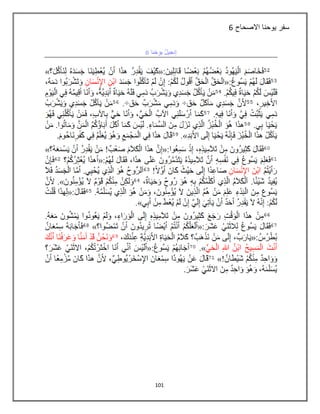 سفر يوحنا الاصحاح 6
إنجيل يوحنا ٥
52فَخَاصَمَ الْيَهُودُ بَعْضُهُمْ بَعْضًا قَائِلِينَ:«كَيْفَ يَقْدِرُ هذَا أَنْ يُعْطِيَنَا جَسَدَهُ لِنَأْكُلَ؟»
53فَقَالَ لَهُمْ يَسُوعُ:«الْحَقَّ الْحَقَّ أَقُولُ لَكُمْ: إِنْ لَمْ تَأْكُلُوا جَسَدَ ابْنِ الإِنْسَانِ وَتَشْرَبُوا دَمَهُ،
فَلَيْسَ لَكُمْ حَيَاةٌ فِيكُمْ. 54مَنْ يَأْكُلُ جَسَدِي وَيَشْرَبُ دَمِي فَلَهُ حَيَاةٌ أَبَدِيَّةٌ، وَأَنَا أُقِيمُهُ فِي الْيَوْمِ
الأَخِيرِ، 55لأَنَّ جَسَدِي مَأْكَلٌ حَقٌّ وَدَمِي مَشْرَبٌ حَقٌّ. 56مَنْ يَأْكُلْ جَسَدِي وَيَشْرَبْ
دَمِي يَثْبُتْ فِيَّ وَأَنَا فِيهِ. 57كَمَا أَرْسَلَنِي الآبُ الْحَيُّ، وَأَنَا حَيٌّ بِالآبِ، فَمَنْ يَأْكُلْنِي فَهُوَ
يَحْيَا بِي. 58هذَا هُوَ الْخُبْزُ الَّذِي نَزَلَ مِنَ السَّمَاءِ. لَيْسَ كَمَا أَكَلَ آبَاؤُكُمُ الْمَنَّ وَمَاتُوا. مَنْ
يَأْكُلْ هذَا الْخُبْزَ فَإِنَّهُ يَحْيَا إِلَى الأَبَدِ». 59قَالَ هذَا فِي الْمَجْمَعِ وَهُوَ يُعَلِّمُ فِي كَفْرَنَاحُومَ.
60فَقَالَ كَثِيرُونَ مِنْ تَلاَمِيذِهِ، إِذْ سَمِعُوا:«إِنَّ هذَا الْكَلاَمَ صَعْبٌ! مَنْ يَقْدِرُ أَنْ يَسْمَعَهُ؟»
61فَعَلِمَ يَسُوعُ فِي نَفْسِهِ أَنَّ تَلاَمِيذَهُ يَتَذَمَّرُونَ عَلَى هذَا، فَقَالَ لَهُمْ:«أَهذَا يُعْثِرُكُمْ؟ 62فَإِنْ
رَأَيْتُمُ ابْنَ الإِنْسَانِ صَاعِدًا إِلَى حَيْثُ كَانَ أَوَّلاً! 63اَلرُّوحُ هُوَ الَّذِي يُحْيِي. أَمَّا الْجَسَدُ فَلاَ
يُفِيدُ شَيْئًا. اَلْكَلاَمُ الَّذِي أُكَلِّمُكُمْ بِهِ هُوَ رُوحٌ وَحَيَاةٌ، 64وَلكِنْ مِنْكُمْ قَوْمٌ لاَ يُؤْمِنُونَ». لأَنَّ
يَسُوعَ مِنَ الْبَدْءِ عَلِمَ مَنْ هُمُ الَّذِينَ لاَ يُؤْمِنُونَ، وَمَنْ هُوَ الَّذِي يُسَلِّمُهُ. 65فَقَالَ:«لِهذَا قُلْتُ
لَكُمْ: إِنَّهُ لاَ يَقْدِرُ أَحَدٌ أَنْ يَأْتِيَ إِلَيَّ إِنْ لَمْ يُعْطَ مِنْ أَبِي».
66مِنْ هذَا الْوَقْتِ رَجَعَ كَثِيرُونَ مِنْ تَلاَمِيذِهِ إِلَى الْوَرَاءِ، وَلَمْ يَعُودُوا يَمْشُونَ مَعَهُ.
67فَقَالَ يَسُوعُ لِلاثْنَيْ عَشَرَ:«أَلَعَلَّكُمْ أَنْتُمْ أَيْضًا تُرِيدُونَ أَنْ تَمْضُوا؟» 68فَأَجَابَهُ سِمْعَانُ
بُطْرُسُ:«يَارَبُّ، إِلَى مَنْ نَذْهَبُ؟ كَلاَمُ الْحَيَاةِ الأَبَدِيَّةِ عِنْدَكَ، 69وَنَحْنُ قَدْ آمَنَّا وَعَرَفْنَا أَنَّكَ
أَنْتَ الْمَسِيحُ ابْنُ اللهِ الْحَيِّ». 70أَجَابَهُمْ يَسُوعُ:«أَلَيْسَ أَنِّي أَنَا اخْتَرْتُكُمْ، الاثْنَيْ عَشَرَ؟
وَوَاحِدٌ مِنْكُمْ شَيْطَانٌ!» 71قَالَ عَنْ يَهُوذَا سِمْعَانَ الإِسْخَرْيُوطِيِّ، لأَنَّ هذَا كَانَ مُزْمِعًا أَنْ
يُسَلِّمَهُ، وَهُوَ وَاحِدٌ مِنَ الاثْنَيْ عَشَرَ.
101